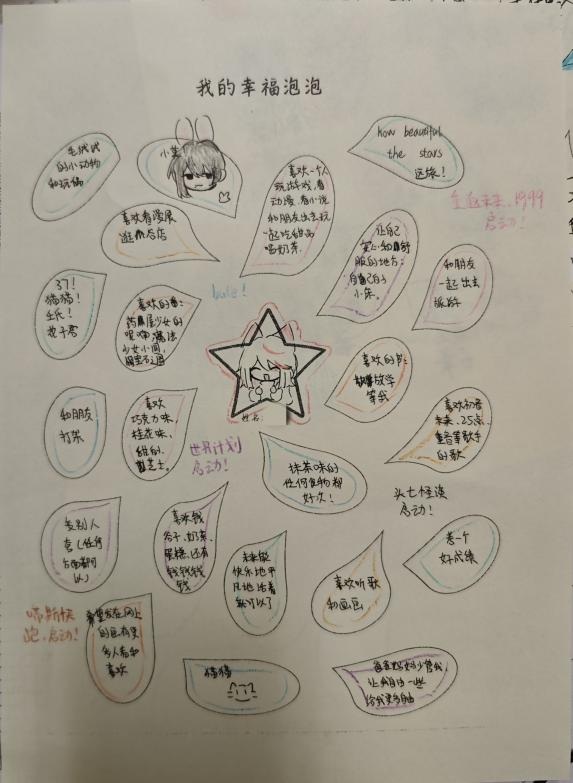 我的幸福泡泡
毛绒绒
的小动物
和玩偶
how beautiful
the stars
远旅！
重返未来：1999
启动！
喜欢一个人
玩游戏，看
动漫，看小说
和朋友出去玩
一起吃甜品
喝奶茶
喜欢看漫展
逛谷店
让自己
安心和舒
服的地方：
自己的小
床。
和朋友
一起出去
旅游
37！
猫猫！
喜欢的番：
药屋少女的
呢喃，魔法
少女小圆，
喜欢的
放学
等我
姓名：
和朋友
打架
喜欢
巧克力味，
桂花味，
甜的，
芝士。
世界计划
启动！
抹茶味的
任何食物都
好次！
喜欢初音
未来，25点，
重音等歌手
的歌
头七怪谈
启动！
被别人
夸（任何
方面都可
以）
喜欢钱
谷子、奶茶、
蛋糕、还有
钱钱钱钱
钱
未来能
快乐地平
凡地活着
就可以了
喜欢听歌
和画画
考一个
好成绩
快
跑，启动！
希望发在网上
的画有更
多人看和
喜欢
猫猫
爸爸妈妈少管我，
让我自由一些
给我更多自由